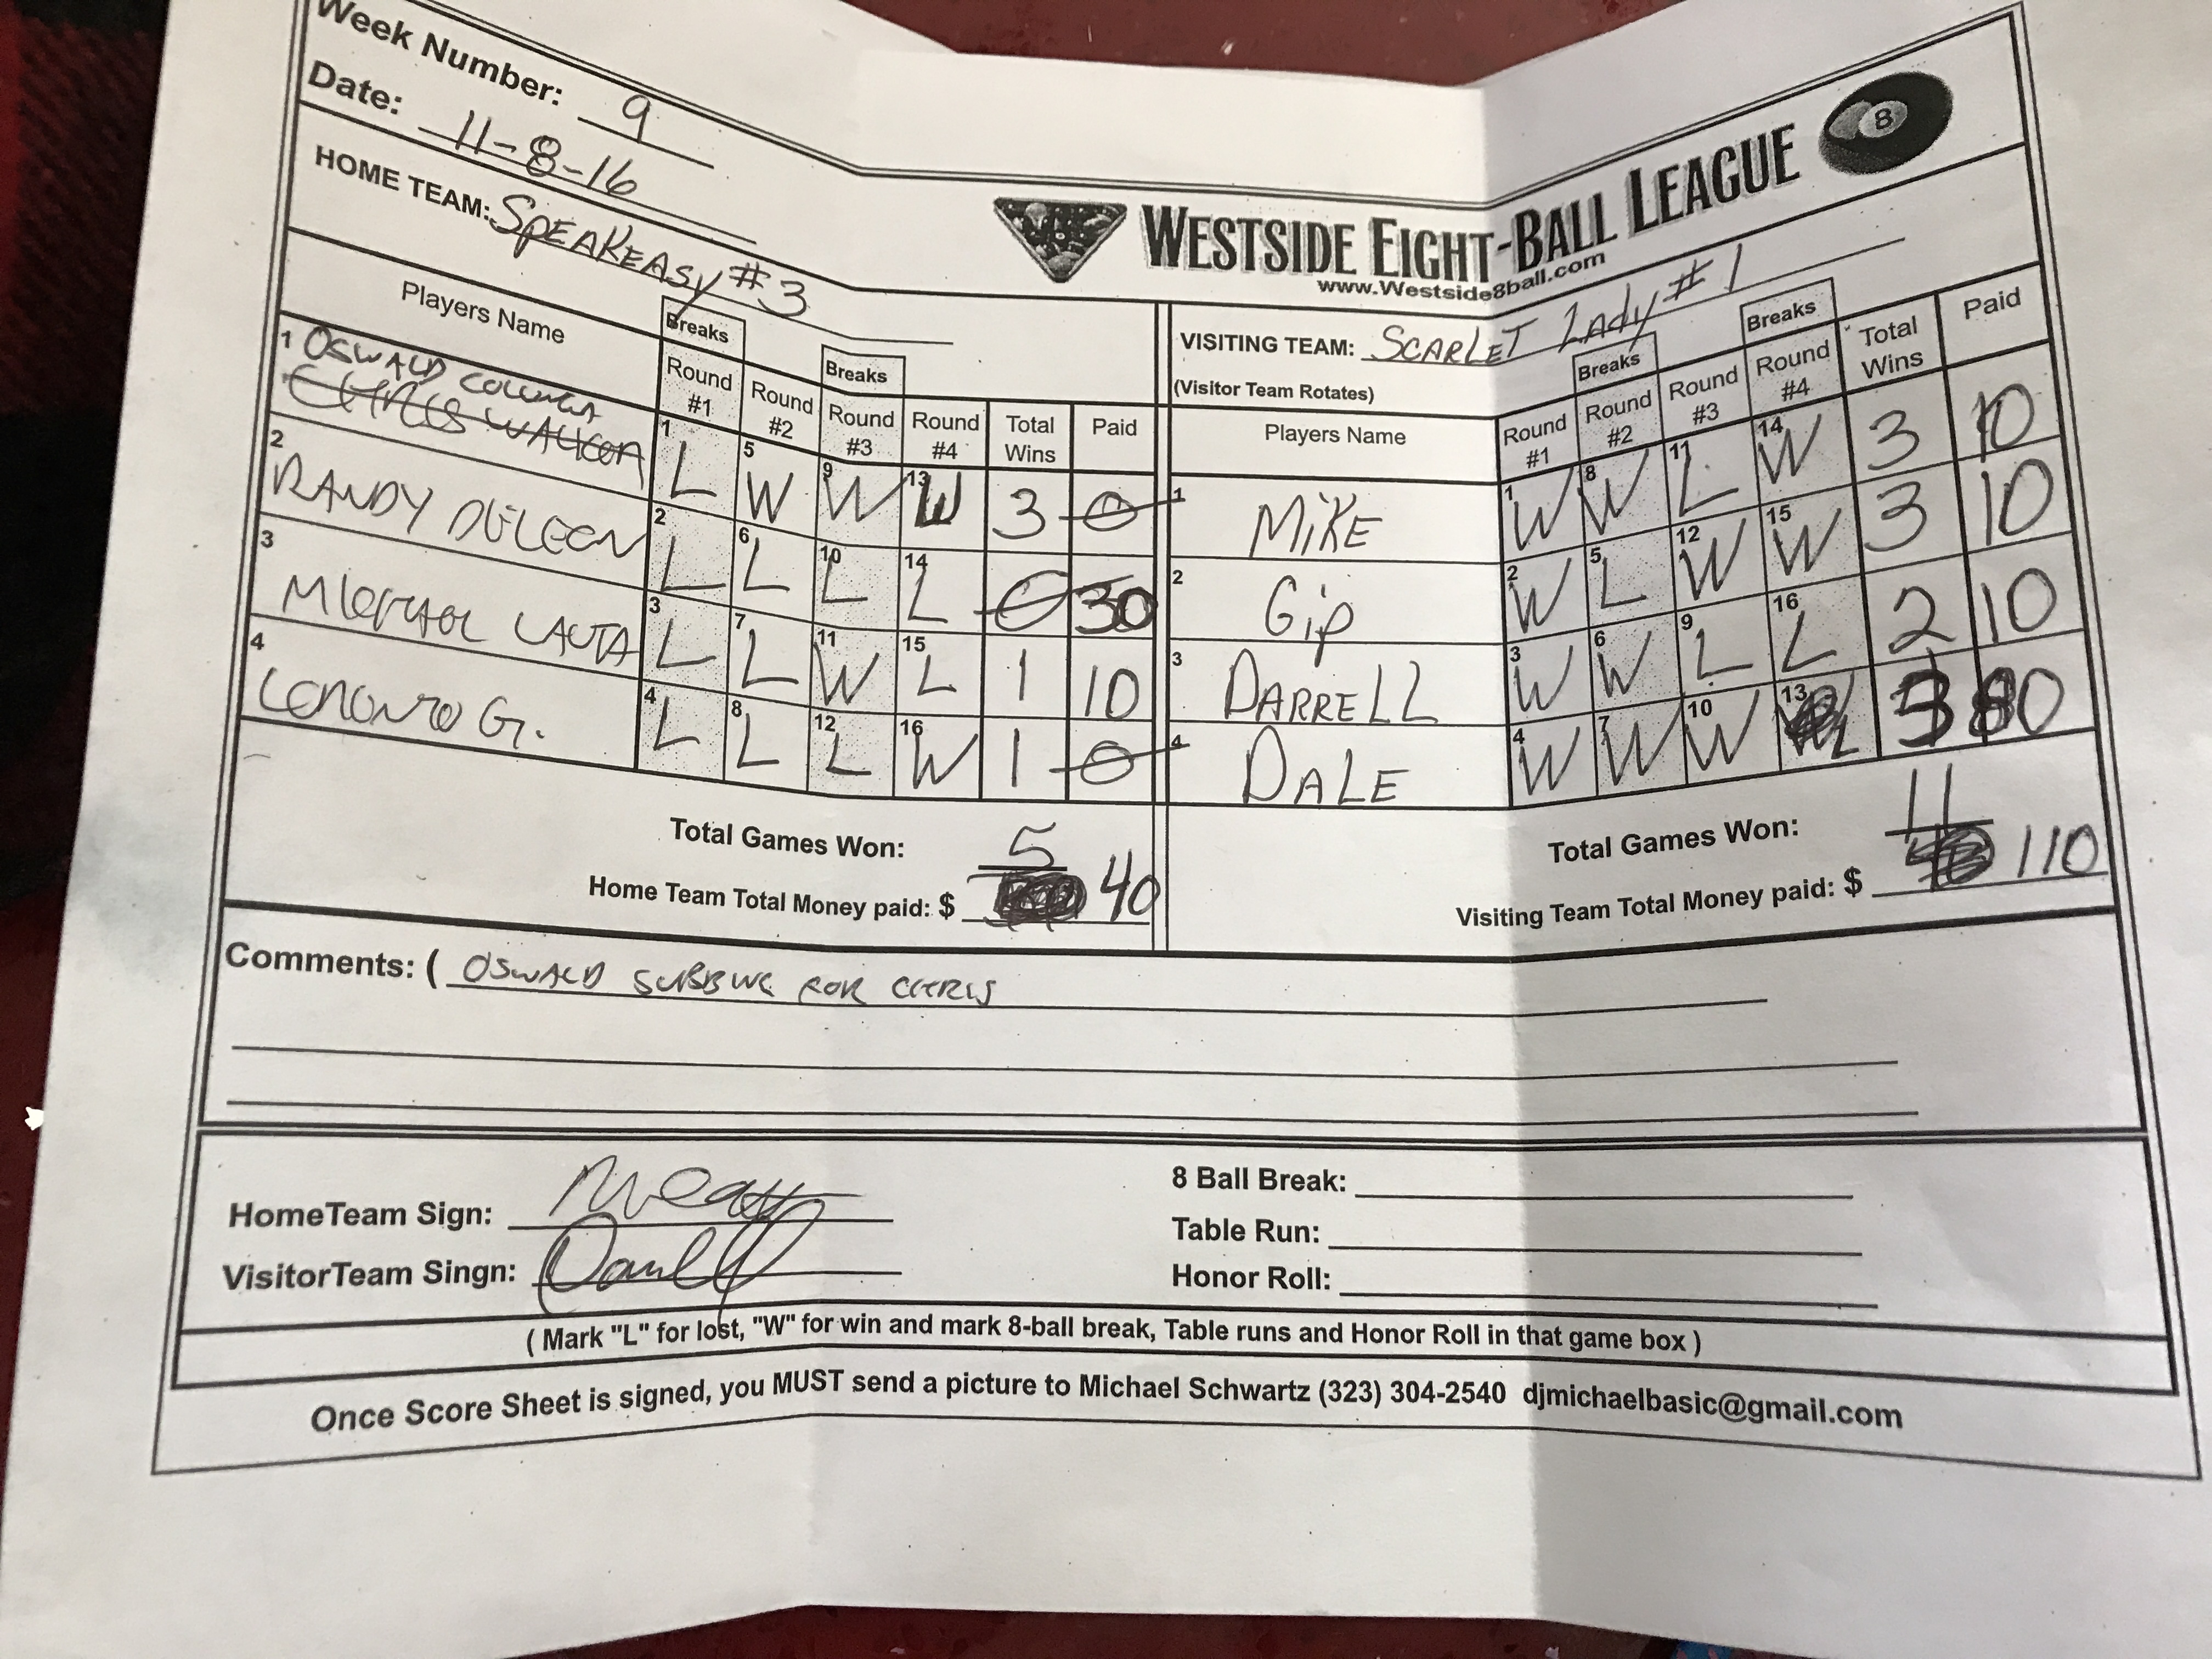 Week Number: 9
Date: 11-8-16
HOME TEAM: SPEAKEASY #3
WESTSIDE EIGHT-BALL LEAGUE
8
www.Westside8ball.com
VISITING TEAM: SCARLET LADY #1
(Visitor Team Rotates)
Players Name Breaks Round #1 Round #2 Breaks Round #3 Round #4 Total Wins Paid
1 OSWALD
CHRIS WALKER 1 L 5 W 9 W 13 W 3 0
2 RANDY DELEON 2 L 6 L 10 L 14 L 0 30
3 MICHAEL 3 L 7 L 11 W 15 L 1 10
4 G. 4 L 8 L 12 L 16 W 1 0
Total Games Won: 5
Home Team Total Money paid: $ 40
Players Name Round #1 Breaks Round #2 Round #3 Breaks Round #4 Total Wins Paid
1 MIKE 1 W 8 W 11 L 14 W 3 10
2 Gip 2 W 5 L 12 W 15 W 3 10
3 DARRELL 3 W 6 W 9 L 16 L 2 10
4 DALE 4 W 7 W 10 W 13 L 3 80
Total Games Won: 11
Visiting Team Total Money paid: $ 110
Comments: ( OSWALD SUBBING FOR CHRIS
HomeTeam Sign:
VisitorTeam Singn:
8 Ball Break:
Table Run:
Honor Roll:
( Mark "L" for lost, "W" for win and mark 8-ball break, Table runs and Honor Roll in that game box )
Once Score Sheet is signed, you MUST send a picture to Michael Schwartz (323) 304-2540 djmichaelbasic@gmail.com